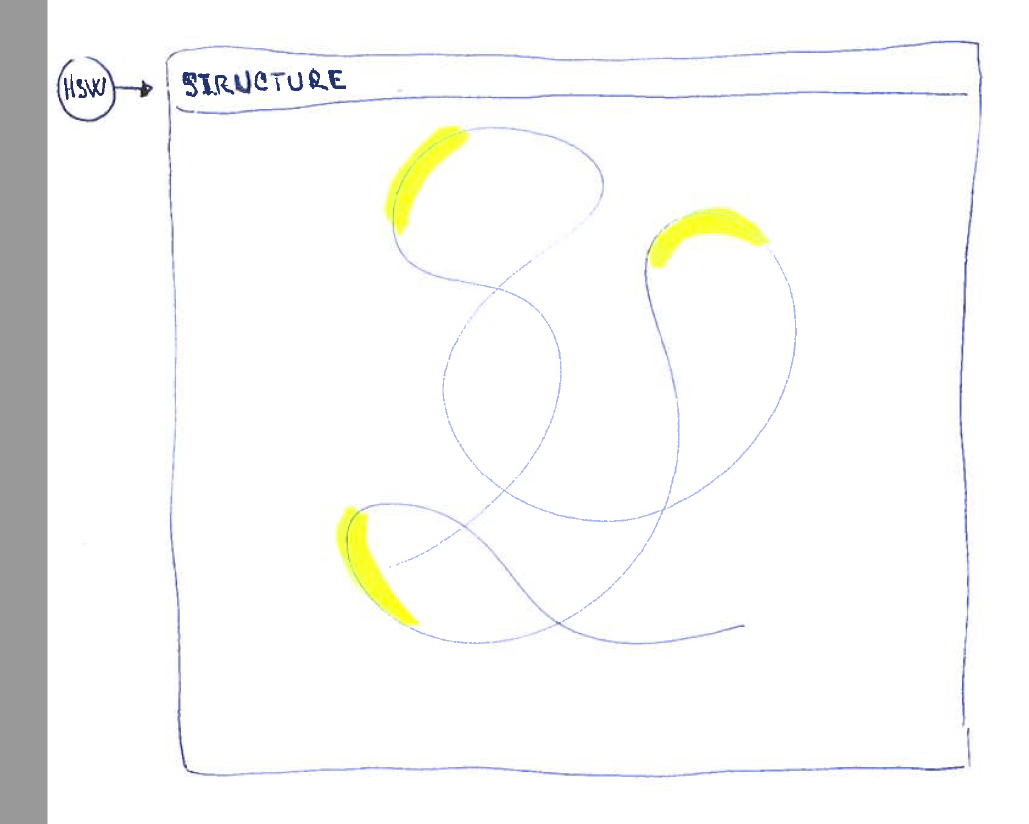 HSW
STRUCTURE